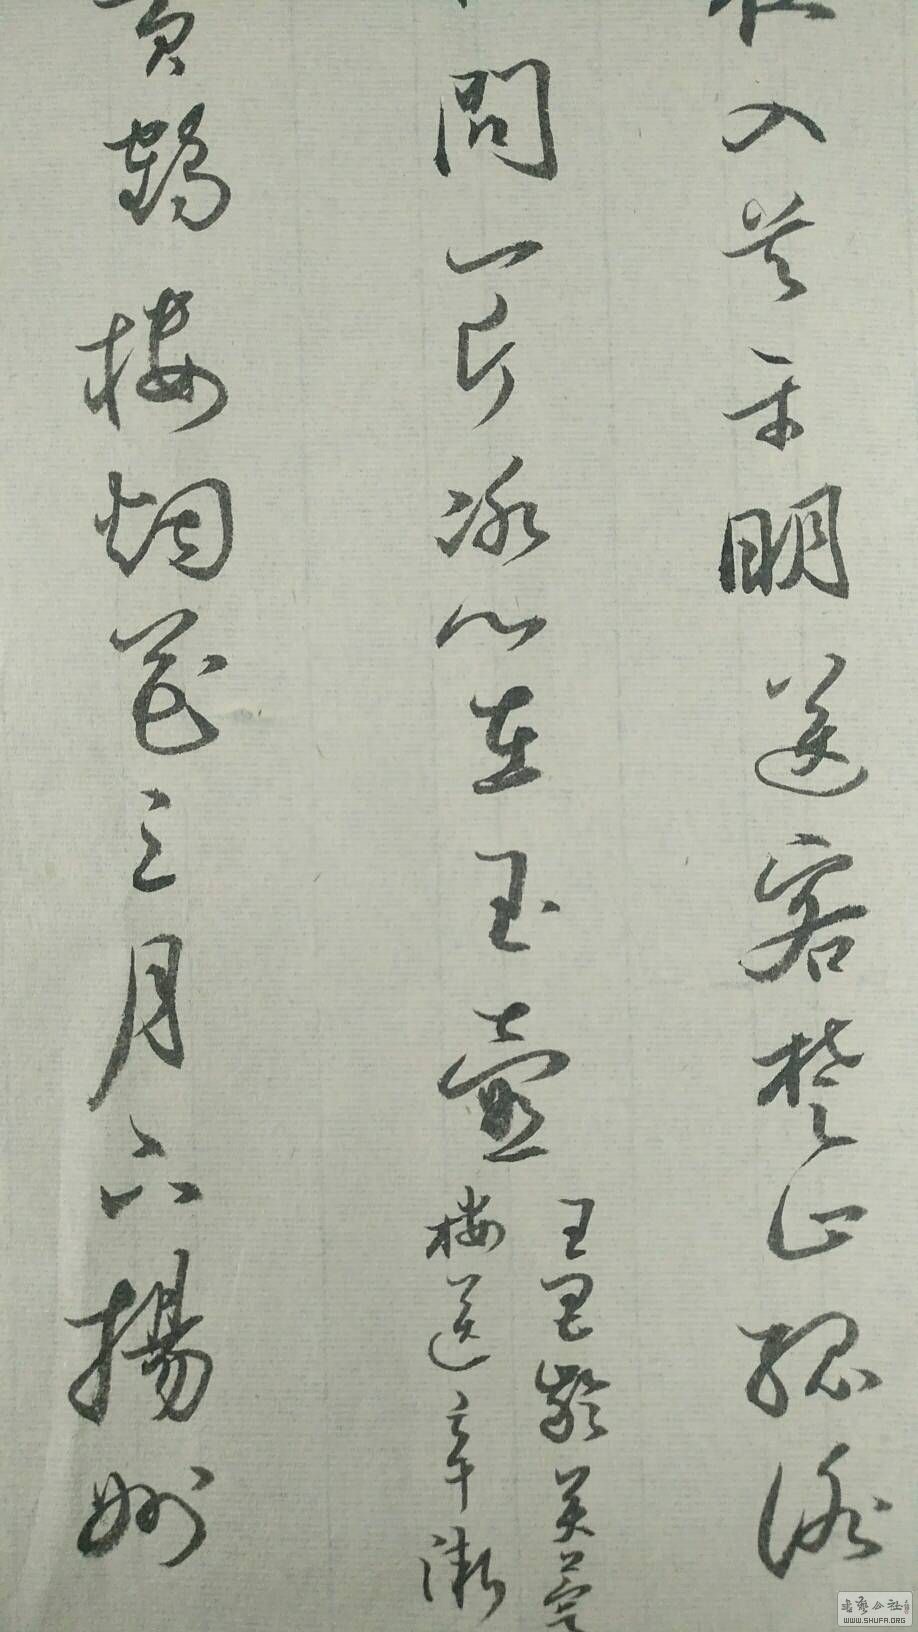 入吴平明送客楚山孤洛
問一片冰心在玉壺
王昌齡芙蓉
樓送辛漸
黄鶴樓烟花三月下揚州
書藝公社
WWW.SHUFA.ORG